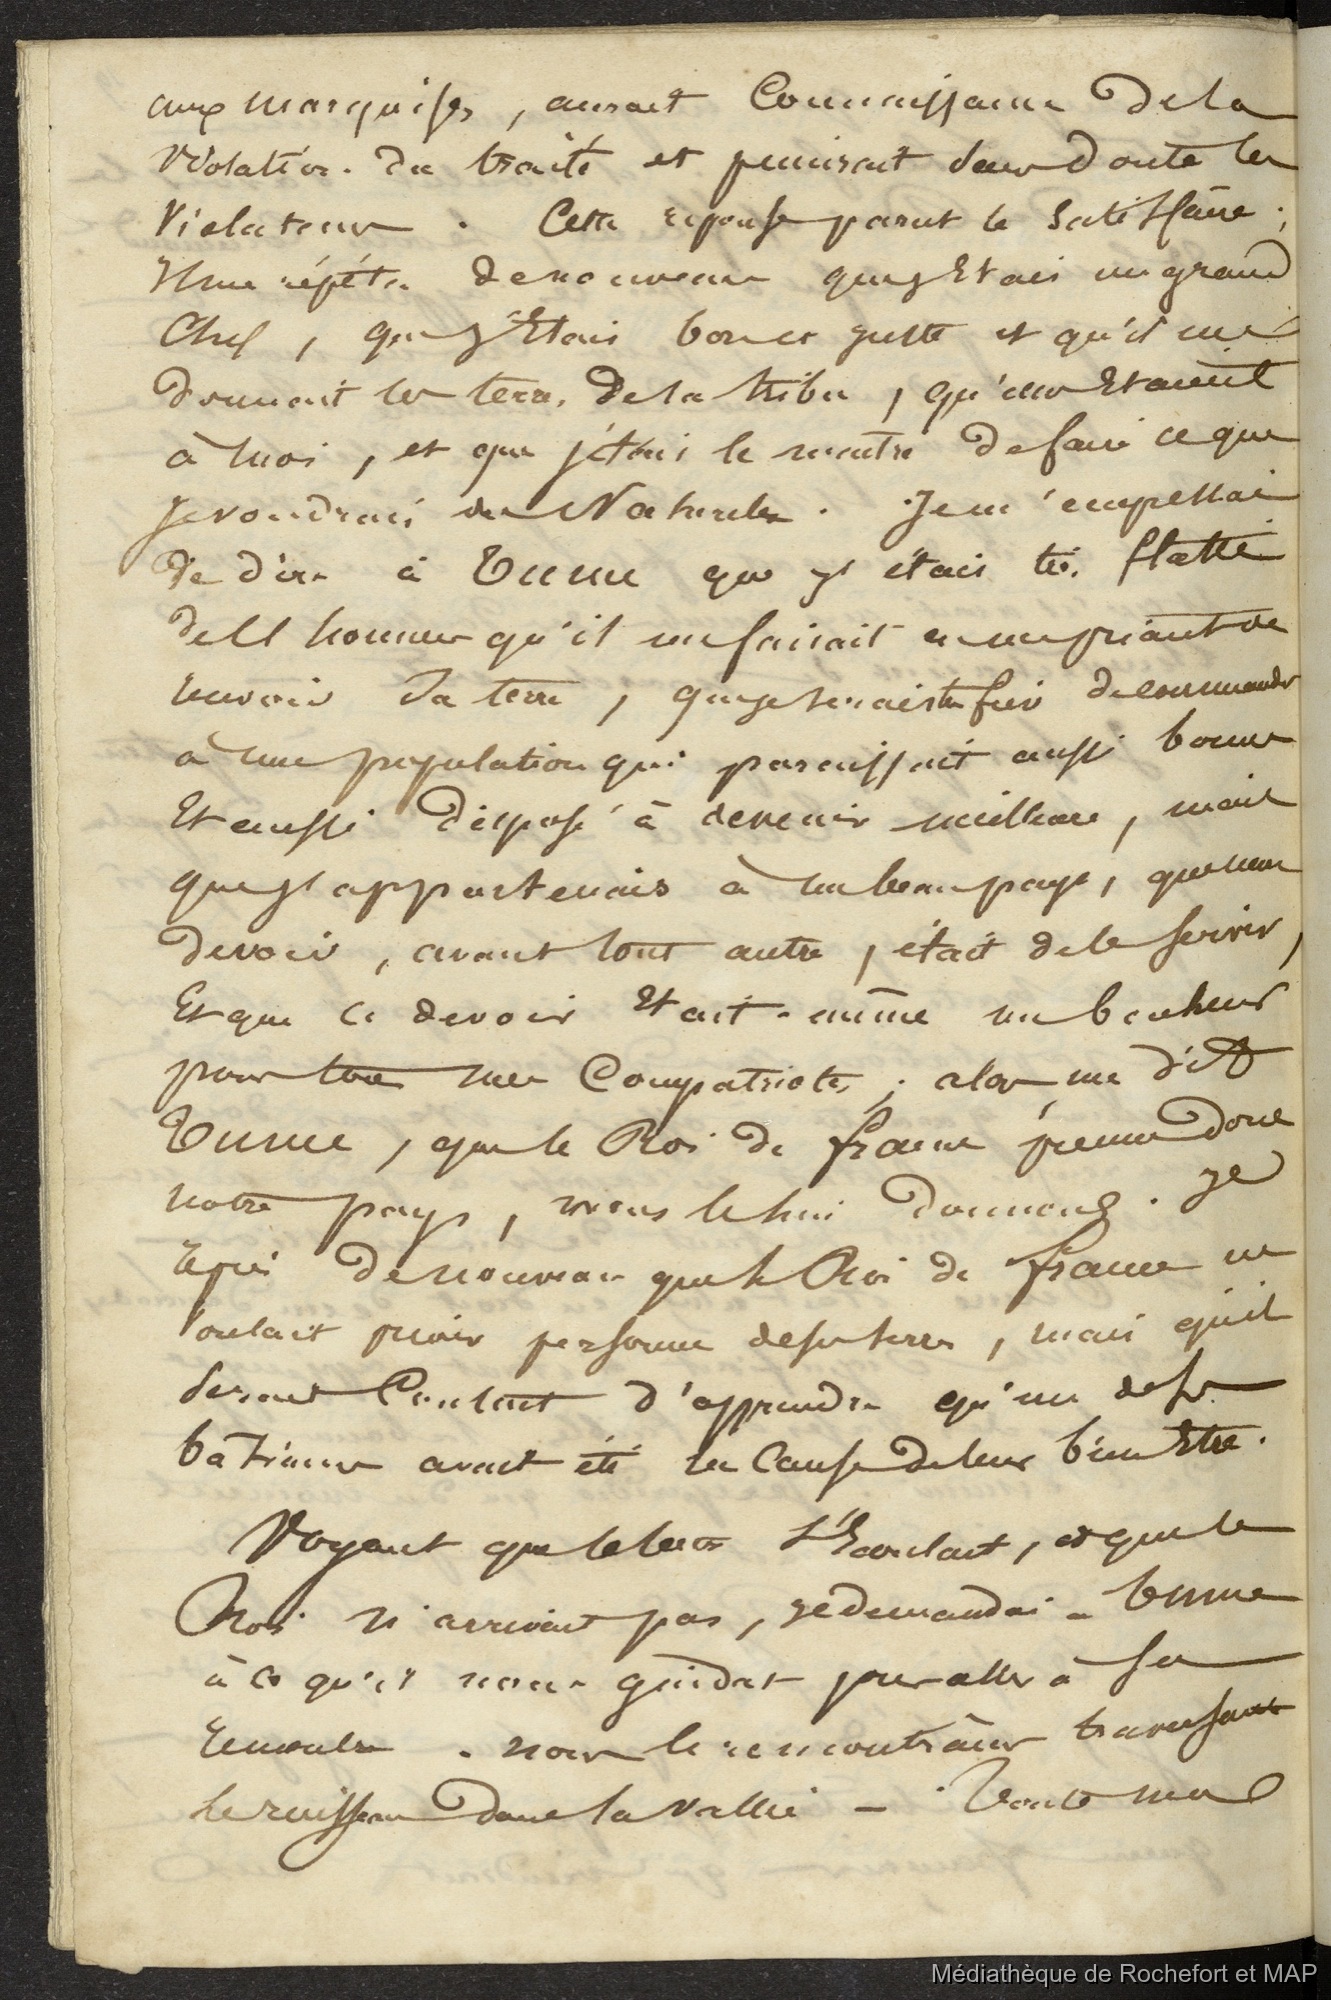 aux Marquises, aurait Connaissance de la
Violation du traité et punirait sans doute les
Violateurs. Cette reponse parut le satisfaire;
Il me répéta de nouveau que j'Etais un grand
Chef, que j'Etais bon et juste et qu'il me
donnait les terres de la tribu, qu'elles Etaient
à moi, et que j'étais le maitre de faire ce que
je voudrais des Naturels. Je m'empressai
de dire à Tunui que j'étais très flatté
de l'honneur qu'il me faisait en me priant de
sa terre, que je serais très fier de commander
à une population qui paraissait aussi bonne
Et aussi disposé à devenir meilleure, mais
que j'appartenais à un beau pays, que mon
devoir, avant tout autre, était de le servir,
Et que ce devoir Etait même un bonheur
pour tous mes Compatriotes; alors me dit
Tunui, que le Roi de france prenne donc
notre pays, nous le lui donnons. Je
de nouveau que le Roi de france ne
voulait priver personne de ses terres, mais qu'il
serait Content d'apprendre qu'un de ses
bâtimens avait été la Cause de leur bien Etre.
Voyant que le temps s'Ecoulait, et que le
Roi n'arrivait pas, je demandai a Tunui
à ce qu'il nous guidat pour aller à sa
rencontre. nous le rencontrâmes traversant
le ruisseau dans la vallée – Toute ma